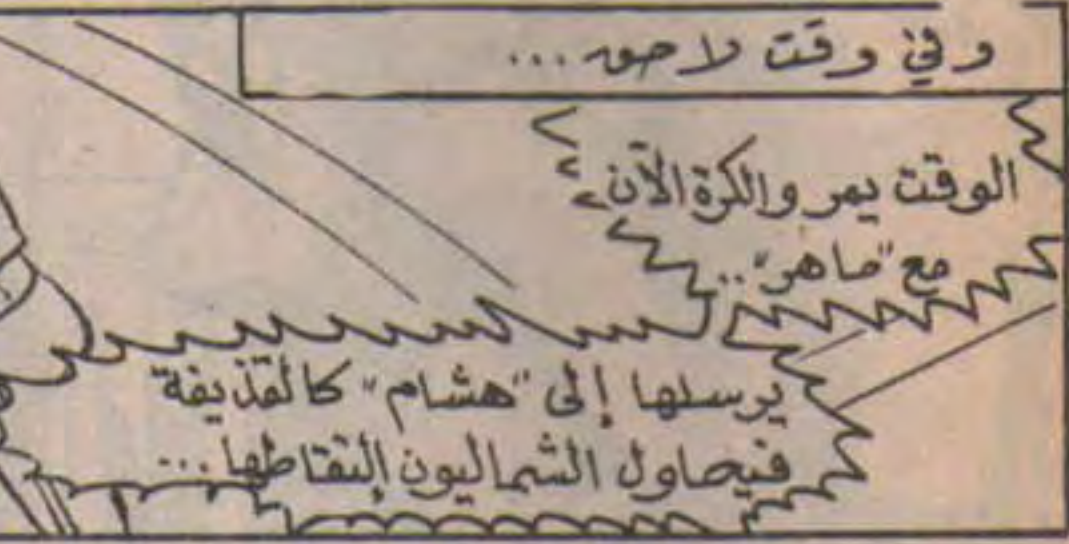 وفي وقت لاحق ...
الوقت يمر والكرة الآن
مع "ماهر" ..
يرسلها إلى "هشام" كالقذيفة
فيحاول الشماليون إلتقاطها ...